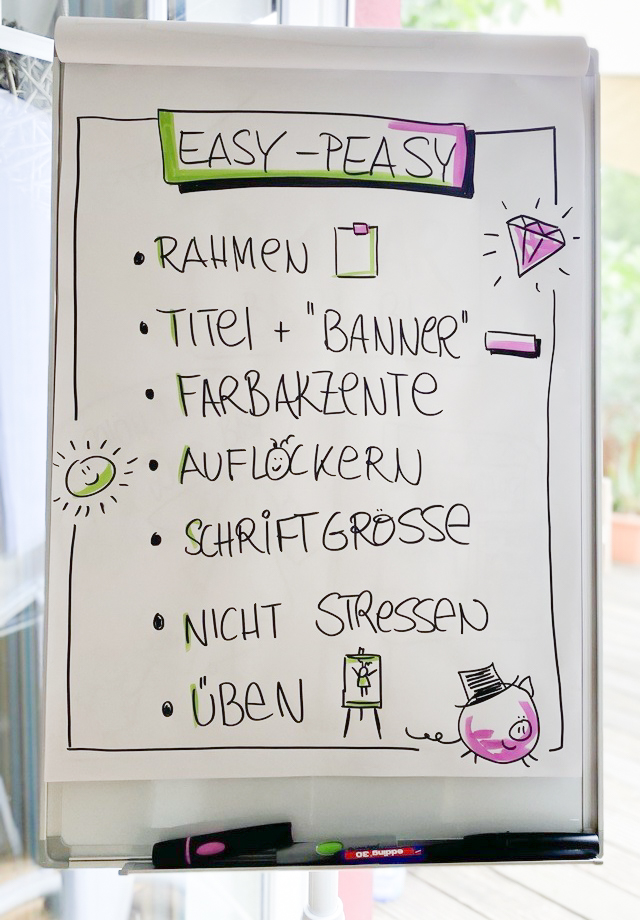 EASY-PEASY
• RAHMEN
• TITEL + "BANNER"
• FARBAKZENTE
• AUFLOCKERN
• SCHRIFTGRÖSSE
• NICHT STRESSEN
• ÜBEN
edding 30